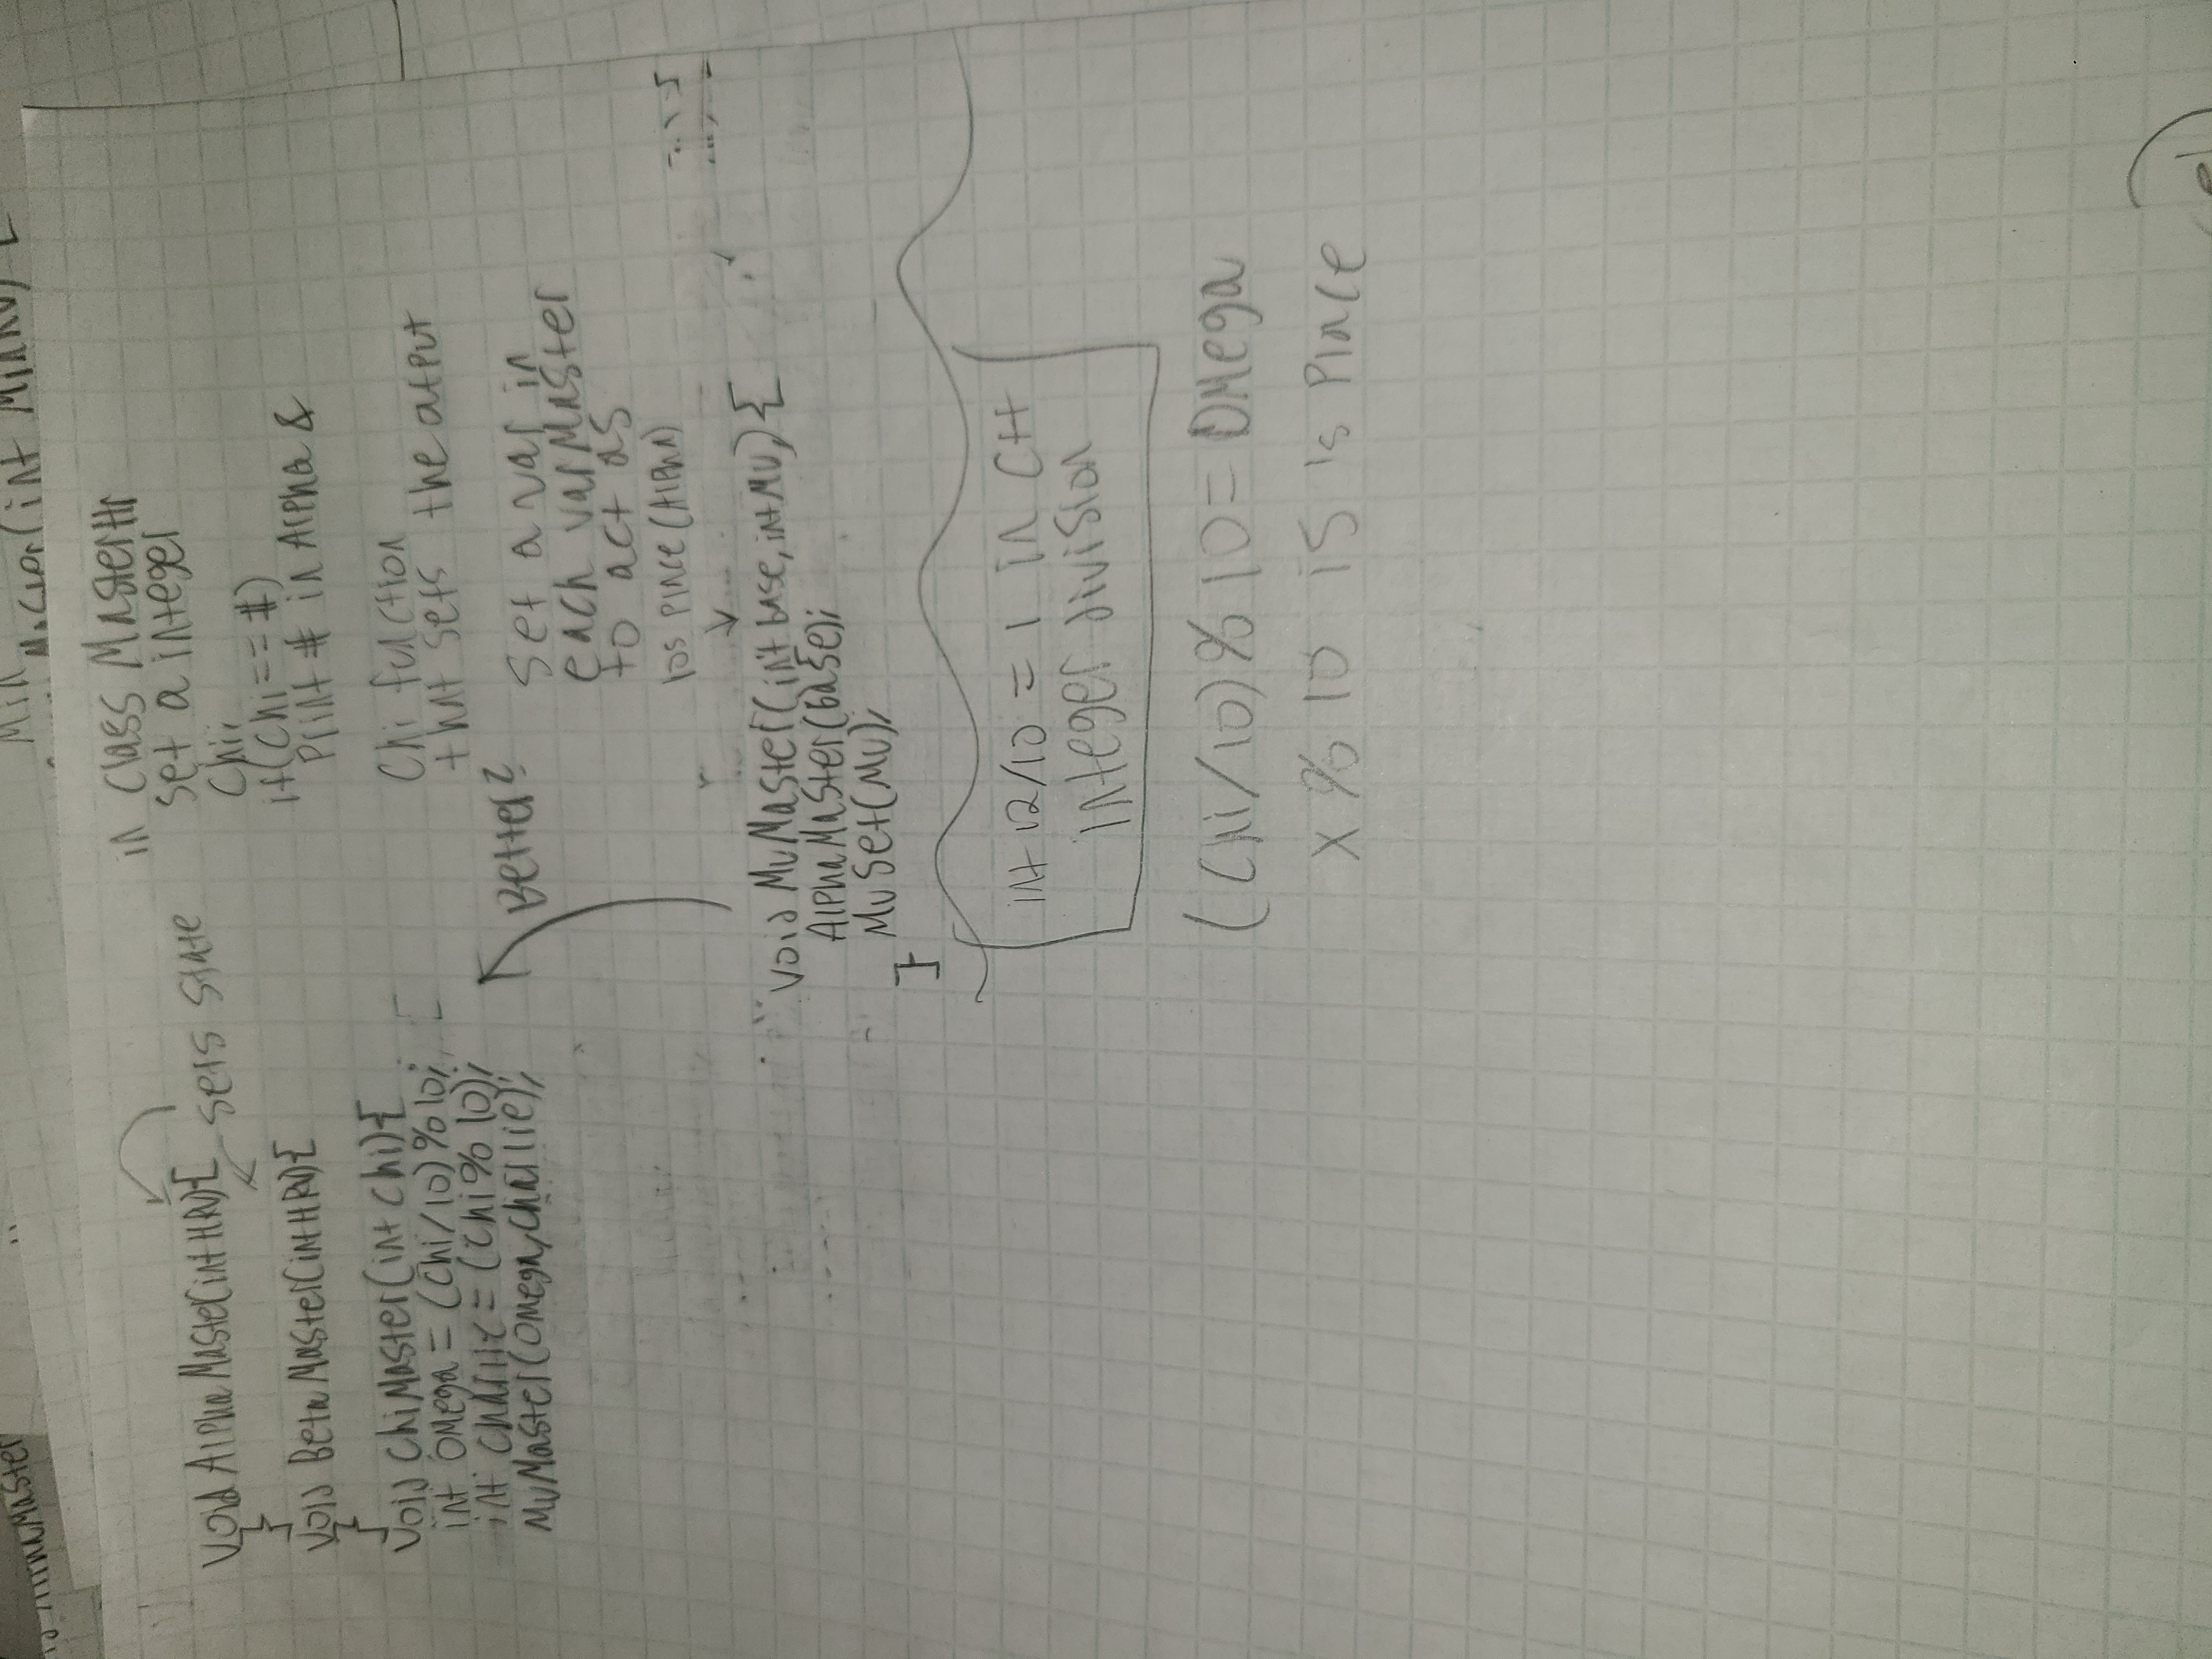 AlphaMaster
Min
Master(int MinRV) {
void AlphaMaster(int HRV){
}
sets state
void BetaMaster(int HRV){
}
void ChiMaster(int chi){
int omega = (chi/10)%10;
int charlie = (chi%10);
MuMaster(omega,charlie);
in class MasterHr
set a integer
Chi;
if(chi==#)
Print # in Alpha &
Chi function
that sets the atput
Better?
Set a var in
each varMaster
to act as
10s place (Alpha)
void MuMaster(int base, int Mu,) {
AlphaMaster(base);
MuSet(Mu);
}
int 12/10 = 1 in C++
integer division
(Chi/10)%10= Omega
x % 10 is 1s Place